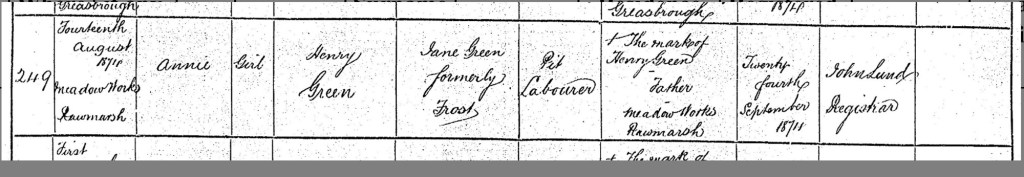 Greasbrough
Greasbrough
249
Fourteenth
August
Meadow Works
Rawmarsh
Annie
Girl
Henry
Green
Jane Green
formerly
Frost
Pit
Labourer
+ The mark of
Henry Green
Father
Meadow Works
Rawmarsh
Twenty
fourth
September
John Lund
Registrar
First
+ The mark of